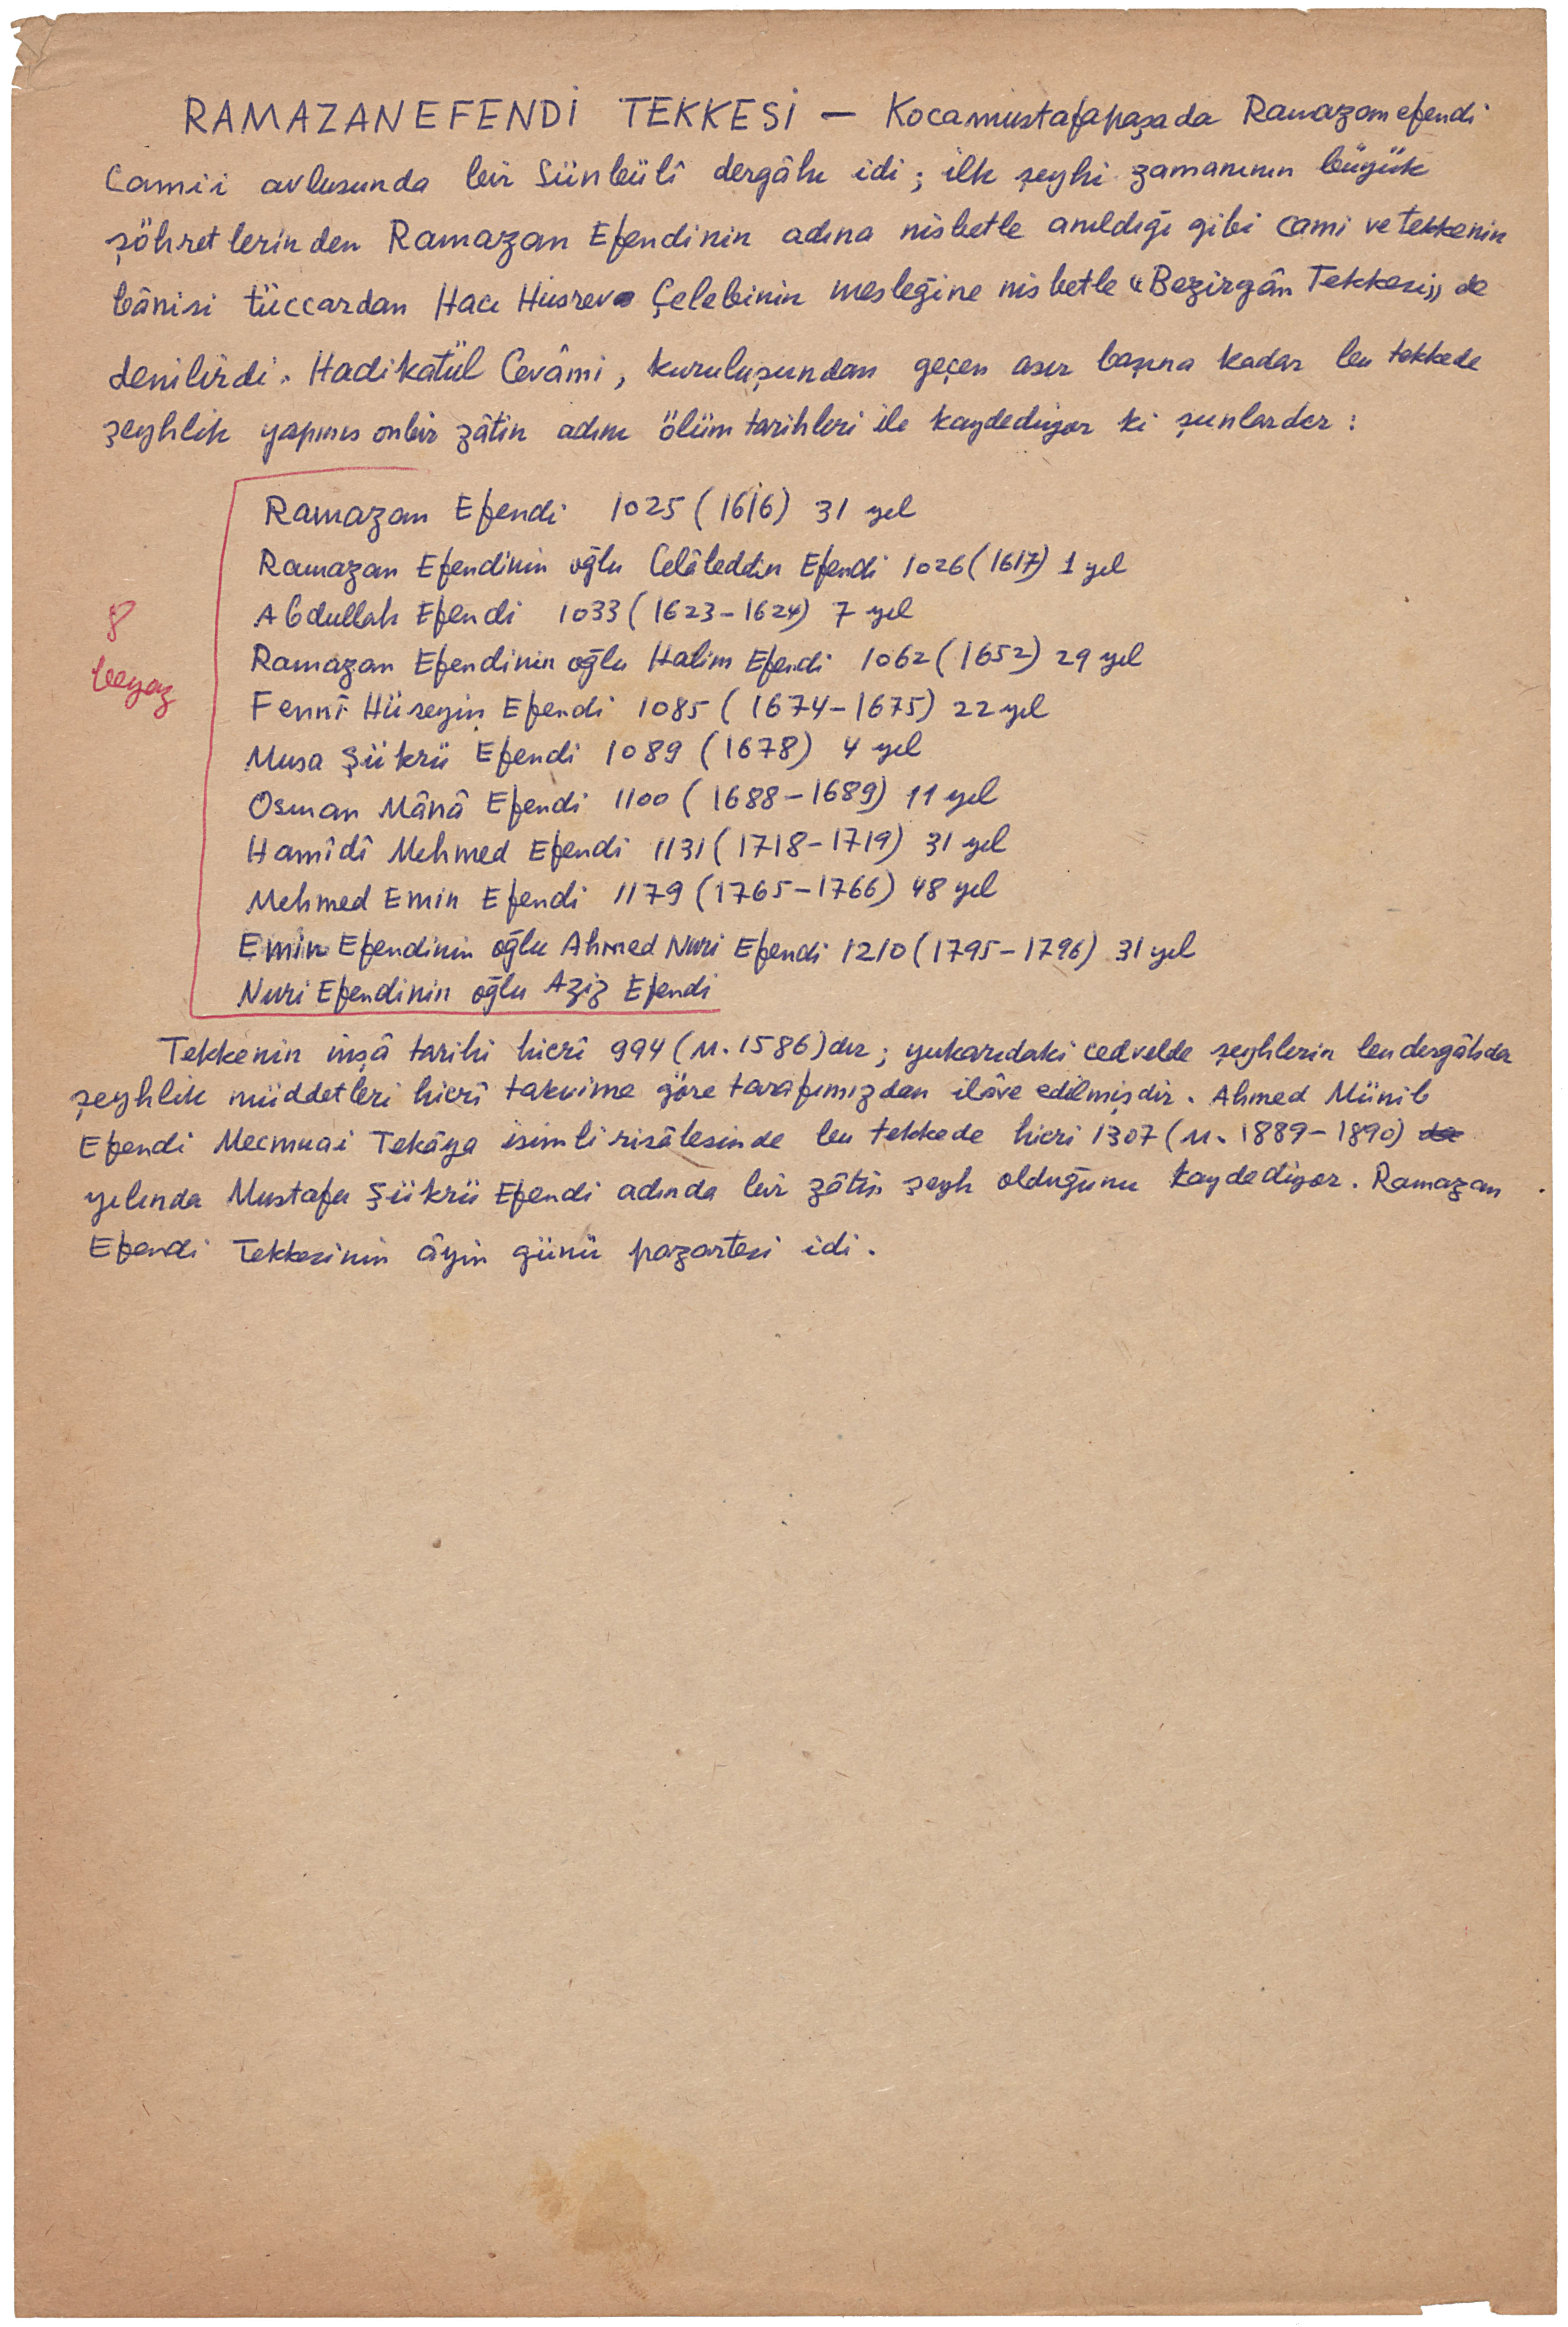 RAMAZANEFENDİ TEKKESİ — Kocamustafapaşada Ramazanefendi
Camii avlusunda bir Sünbülî dergâhı idi; ilk şeyhi zamanının büyük
şöhretlerinden Ramazan Efendinin adına nisbetle anıldığı gibi cami ve tekkenin
bânisi tüccardan Hacı Husrev Çelebinin mesleğine nisbetle «Bezirgân Tekkesi» de
denilirdi. Hadikatül Cevâmi, kuruluşundan geçen asır başına kadar bu tekkede
şeyhlik yapmış onbir zâtin adını ölüm tarihleri ile kaydediyor ki şunlardır:
Ramazan Efendi 1025 (1616) 31 yıl
Ramazan Efendinin oğlu Celâleddin Efendi 1026 (1617) 1 yıl
Abdullah Efendi 1033 (1623-1624) 7 yıl
8
beyaz
Ramazan Efendinin oğlu Halim Efendi 1062 (1652) 29 yıl
Fennî Hüseyin Efendi 1085 (1674-1675) 22 yıl
Musa Şükrü Efendi 1089 (1678) 4 yıl
Osman Mânâ Efendi 1100 (1688-1689) 11 yıl
Hamîdî Mehmed Efendi 1131 (1718-1719) 31 yıl
Mehmed Emin Efendi 1179 (1765-1766) 48 yıl
Emin Efendinin oğlu Ahmed Nuri Efendi 1210 (1795-1796) 31 yıl
Nuri Efendinin oğlu Aziz Efendi
Tekkenin inşâ tarihi hicrî 994 (M. 1586) dır; yukarıdaki cedvelde şeyhlerin bu dergâhda
şeyhlik müddetleri hicrî takvime göre tarafımızdan ilâve edilmişdir. Ahmed Münib
Efendi Mecmuai Tekâya isimli risâlesinde bu tekkede hicri 1307 (M. 1889-1890) da
yılında Mustafa Şükrü Efendi adında bir zâtin şeyh olduğunu kaydediyor. Ramazan
Efendi Tekkesinin âyin günü pazartesi idi.